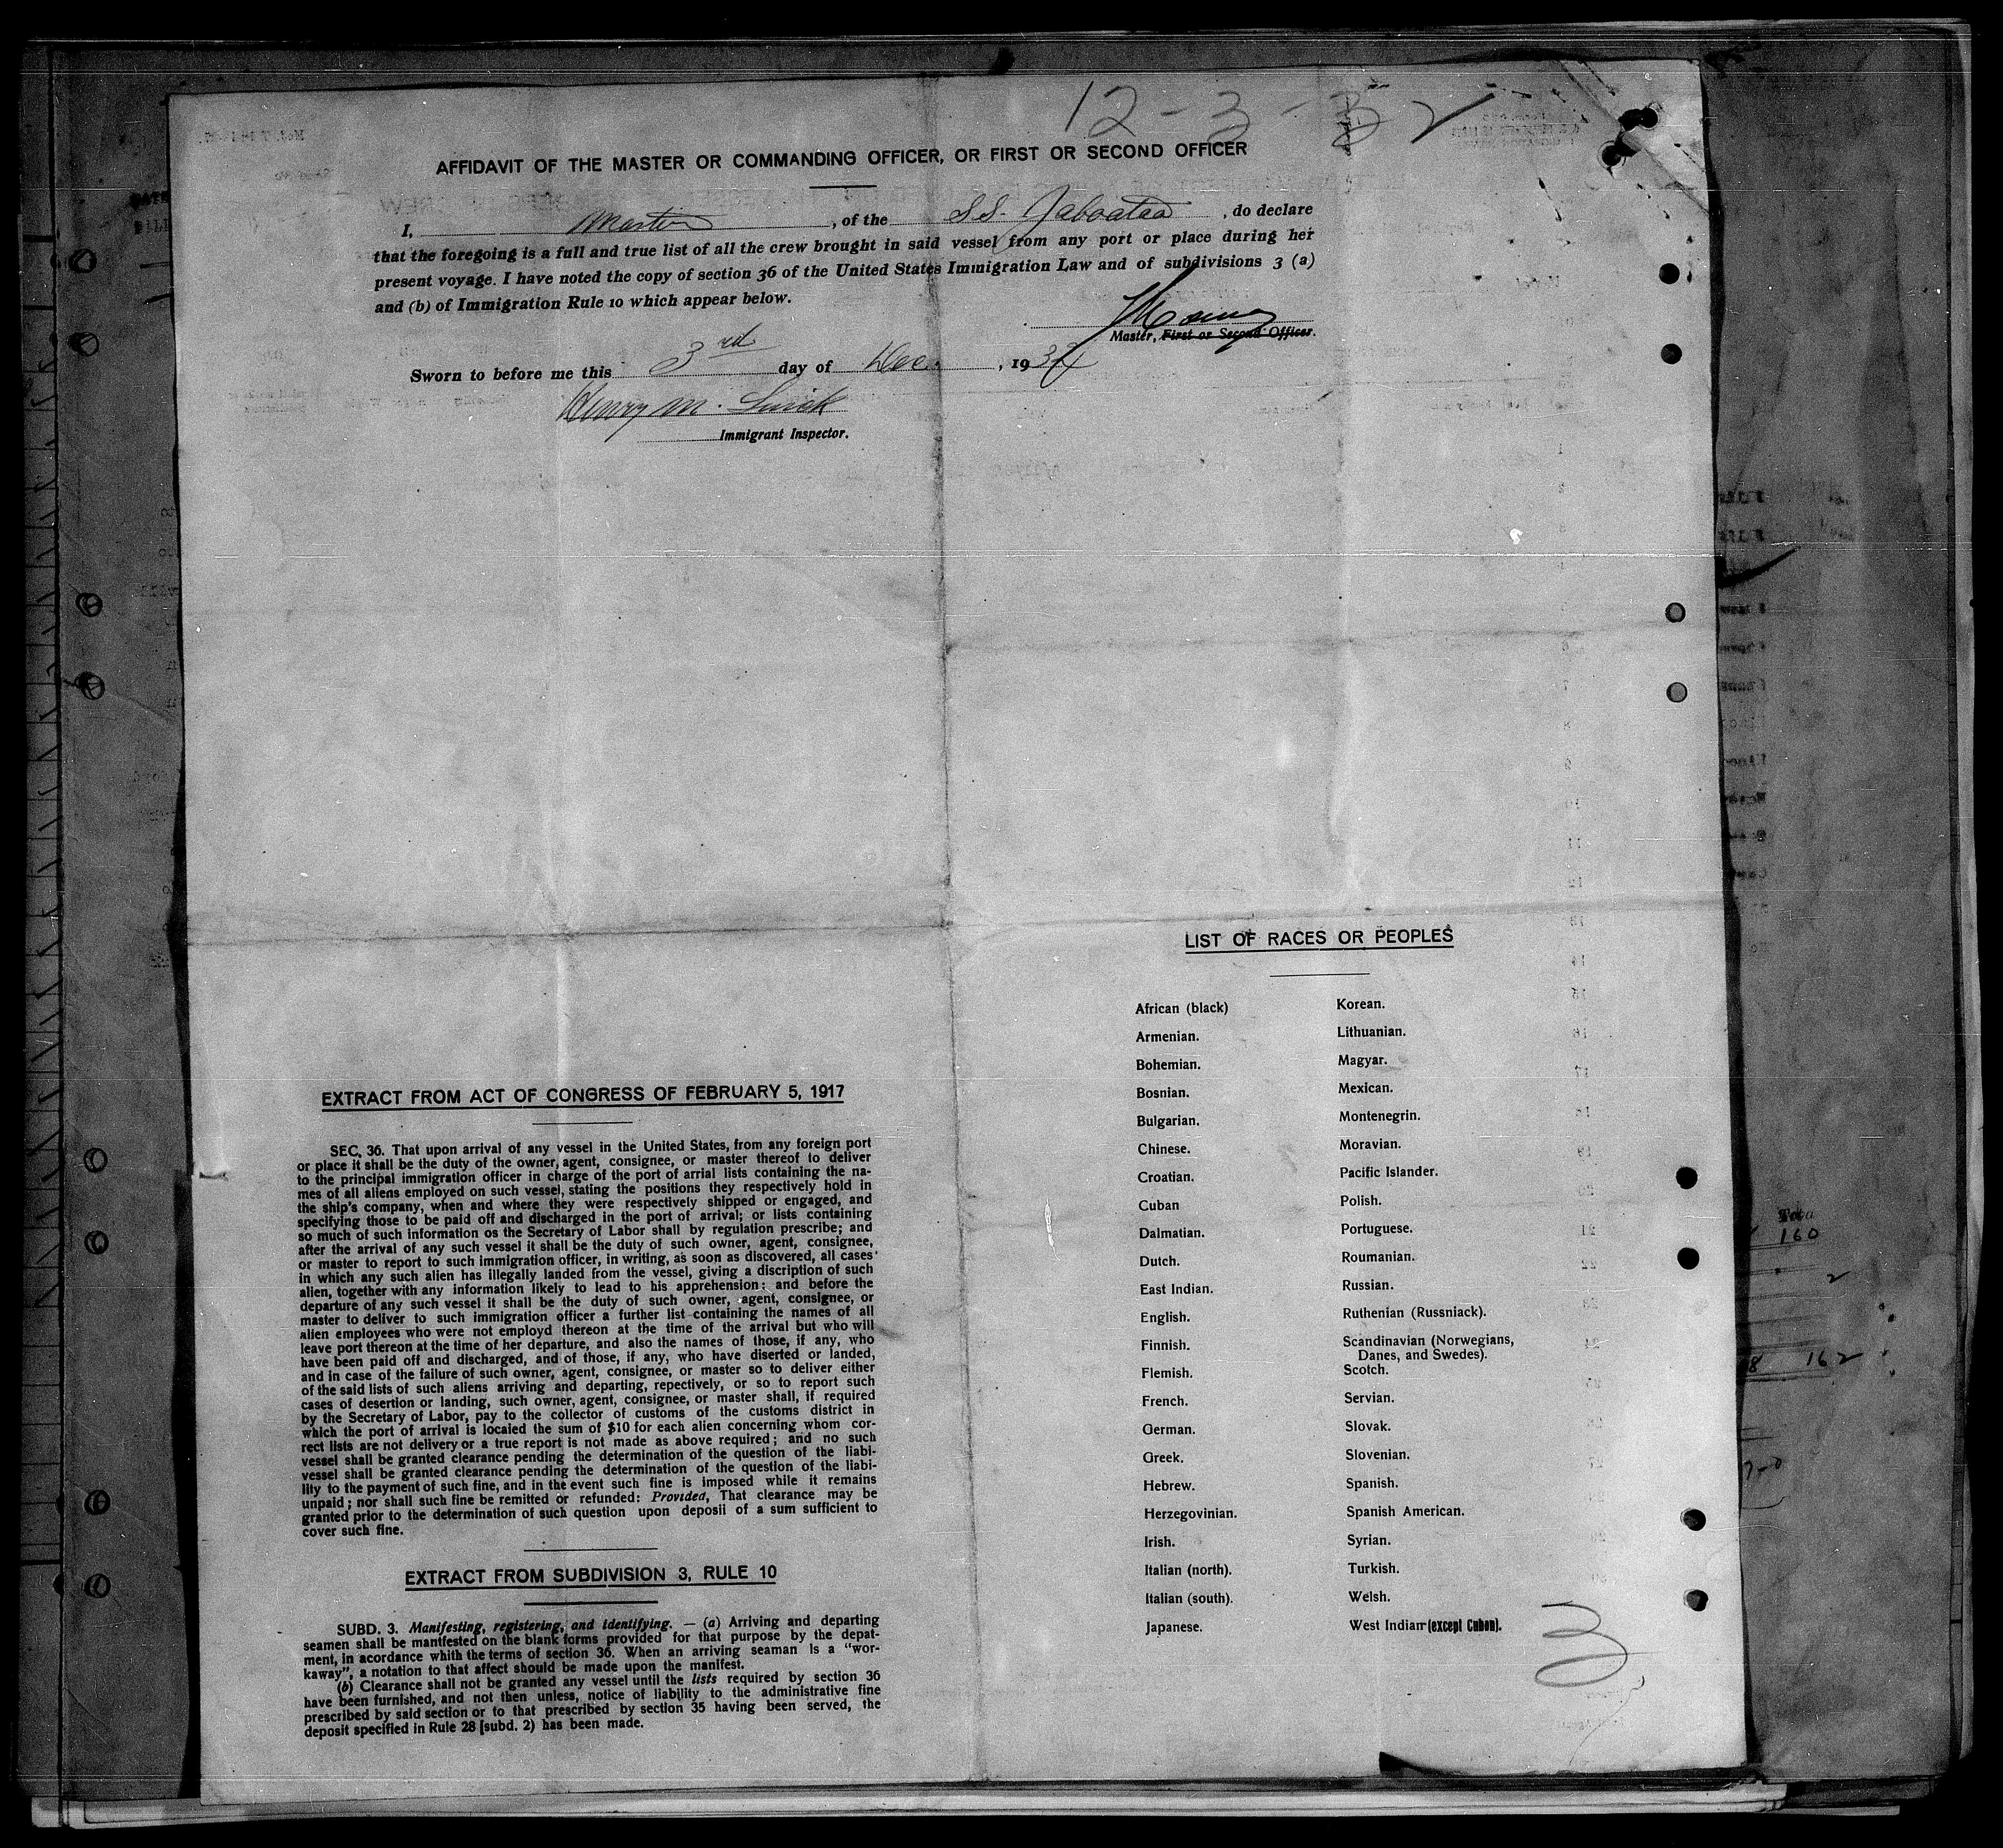 12-3-32
AFFIDAVIT OF THE MASTER OR COMMANDING OFFICER, OR FIRST OR SECOND OFFICER
I, Master, of the S.S. Jaboatao, do declare
that the foregoing is a full and true list of all the crew brought in said vessel from any port or place during her
present voyage. I have noted the copy of section 36 of the United States Immigration Law and of subdivisions 3 (a)
and (b) of Immigration Rule 10 which appear below.
Master, First or Second Officer.
Sworn to before me this 3rd day of Dec. , 1932
Henry M.
Immigrant Inspector.
EXTRACT FROM ACT OF CONGRESS OF FEBRUARY 5, 1917
SEC. 36. That upon arrival of any vessel in the United States, from any foreign port
or place it shall be the duty of the owner, agent, consignee, or master thereof to deliver
to the principal immigration officer in charge of the port of arrial lists containing the na-
mes of all aliens employed on such vessel, stating the positions they respectively hold in
the ship's company, when and where they were respectively shipped or engaged, and
specifying those to be paid off and discharged in the port of arrival; or lists containing
so much of such information os the Secretary of Labor shall by regulation prescribe; and
after the arrival of any such vessel it shall be the duty of such owner, agent, consignee,
or master to report to such immigration officer, in writing, as soon as discovered, all cases
in which any such alien has illegally landed from the vessel, giving a discription of such
alien, together with any information likely to lead to his apprehension; and before the
departure of any such vessel it shall be the duty of such owner, agent, consignee, or
master to deliver to such immigration officer a further list containing the names of all
alien employees who were not employd thereon at the time of the arrival but who will
leave port thereon at the time of her departure, and also the names of those, if any, who
have been paid off and discharged, and of those, if any, who have diserted or landed,
and in case of the failure of such owner, agent, consignee, or master so to deliver either
of the said lists of such aliens arriving and departing, repectively, or so to report such
cases of desertion or landing, such owner, agent, consignee, or master shall, if required
by the Secretary of Labor, pay to the collector of customs of the customs district in
which the port of arrival is locaied the sum of $10 for each alien concerning whom cor-
rect lists are not delivery or a true report is not made as above required; and no such
vessel shall be granted clearance pending the determination of the question of the liabi-
vessel shall be granted clearance pending the determination of the question of the liabi-
lity to the payment of such fine, and in the event such fine is imposed while it remains
unpaid; nor shall such fine be remitted or refunded: Provided, That clearance may be
granted prior to the determination of such question upon deposii of a sum sufficient to
cover such fine.
EXTRACT FROM SUBDIVISION 3, RULE 10
SUBD. 3. Manifesting, registering, and identifying. — (a) Arriving and departing
seamen shall be mantfested on the blank forms provided for that purpose by the depat-
ment, in acordance whith the terms of section 36. When an arriving seaman is a "wor-
kaway", a notation to that affect should be made upon the manifest.
(b) Clearance shall not be granted any vessel until the lists required by section 36
have been furnished, and not then unless, notice of liability to the administrative fine
prescribed by said section or to that prescribed by section 35 having been served, the
deposit specified in Rule 28 [subd. 2) has been made.
LIST OF RACES OR PEOPLES
African (black)
Armenian.
Bohemian.
Bosnian.
Bulgarian.
Chinese.
Croatian.
Cuban
Dalmatian.
Dutch.
East Indian.
English.
Finnish.
Flemish.
French.
German.
Greek.
Hebrew.
Herzegovinian.
Irish.
Italian (north).
Italian (south).
Japanese.
Korean.
Lithuanian.
Magyar.
Mexican.
Montenegrin.
Moravian.
Pacific Islander.
Polish.
Portuguese.
Roumanian.
Russian.
Ruthenian (Russniack).
Scandinavian (Norwegians,
Danes, and Swedes).
Scotch.
Servian.
Slovak.
Slovenian.
Spanish.
Spanish American.
Syrian.
Turkish.
Welsh.
West Indian (except Cuban).
3
160
162